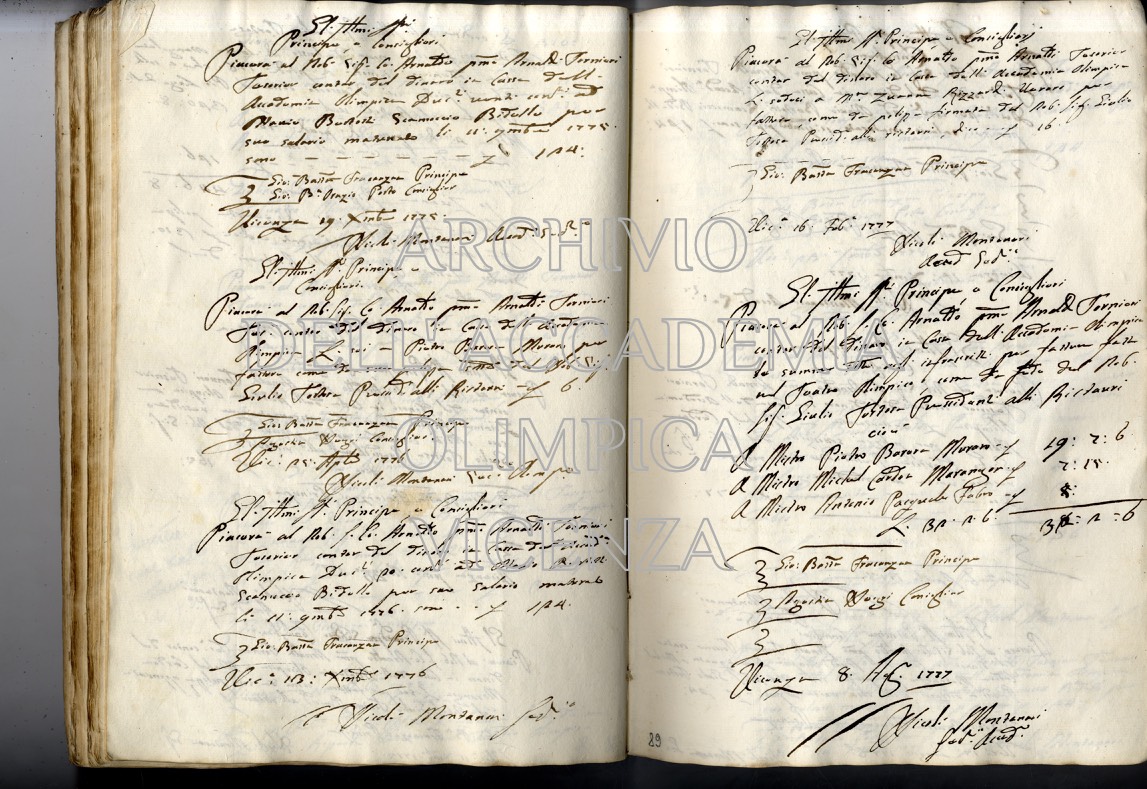 Gl' Ill.mi S.ri
Principe e Consiglieri
Piacerà al Nob. Sig. Co. Arnaldo p.mo Arnaldi Tornieri
Tesorier contar del dinaro in Cassa dell'
Accademia Olimpica Duc.ti venti cor.ti ad
Scanuccio Bidello per
suo salario maturato li 11: 9mbre 1775.
sono 124.
Gio: Batta Fracanzan Principe
Gio: B.a Orazio Porto Consiglier
Vicenza 19 Xmbre 1775.
Nicolò Montanari Accad.
Gl' Ill.mi S.ri Principe e
Consiglieri.
Piacerà al Nob. Sig. Co. Arnaldo p.mo Arnaldi Tornieri
Tes. contar del dinaro in Cassa dell' Accademia
Olimpica L. sei a Pietro Barera Muraro per
fatture come da
Giulio Tortosa Presid. alli Ristauri 6.
Gio: Batta Fracanzan Principe
Consiglier
Vic.a 25 1776
Nicolò Montanari
Gl' Ill.mi S.ri Principe e Consiglieri
Piacerà al Nob. S. Co. Arnaldo p.mo Arnaldi Tornieri
Tesorier contar del dinaro in Cassa dell' Accad.a
Olimpica Duc.ti 20: cor.ti
Scanuccio Bidello per suo salario maturato
li 11: 9mbre 1776. sono 124.
Gio: Batta Fracanzan Principe
Vic.a 13: Xmbre 1776
Nicolò Montanari
Gl' Ill.mi S.ri Principe e Consiglieri
Piacerà al Nob. Sig. Co. Arnaldo p.mo Arnaldi Tesorier
contar del dinaro in Cassa dell' Accademia Olimpica
L. sedeci a M.ro Zuanne per
fatture come da poliza firmata dal Nob. Sig. Giulio
Tortosa Presid. alli ristauri, dico 16.
Gio: Batta Fracanzan Principe
Vic.a 16: Feb.o 1777
Nicolò Montanari
Accad.
Gl' Ill.mi S.ri Principe e Consiglieri
Piacerà al Nob. S. Co. Arnaldo p.mo Arnaldi Tornieri
contar del dinaro in Cassa dell' Accademia Olimpica
la summa agl' infrascritti per fatture fatte
nel Teatro Olimpico come da del Nob.
Sig. Giulio Tortosa Presidente alli Ristauri
cioè
A Mistro Pietro Barera Muraro 19: 7: 6
A Mistro Michel Marangon 7: 15.
A Mistro Antonio Pasquale Fabro
Gio: Batta Fracanzan Principe
Consiglier
Vicenza 8. 1777
Nicolò Montanari
89
ARCHIVIO
DELL'ACCADEMIA
OLIMPICA
VICENZA